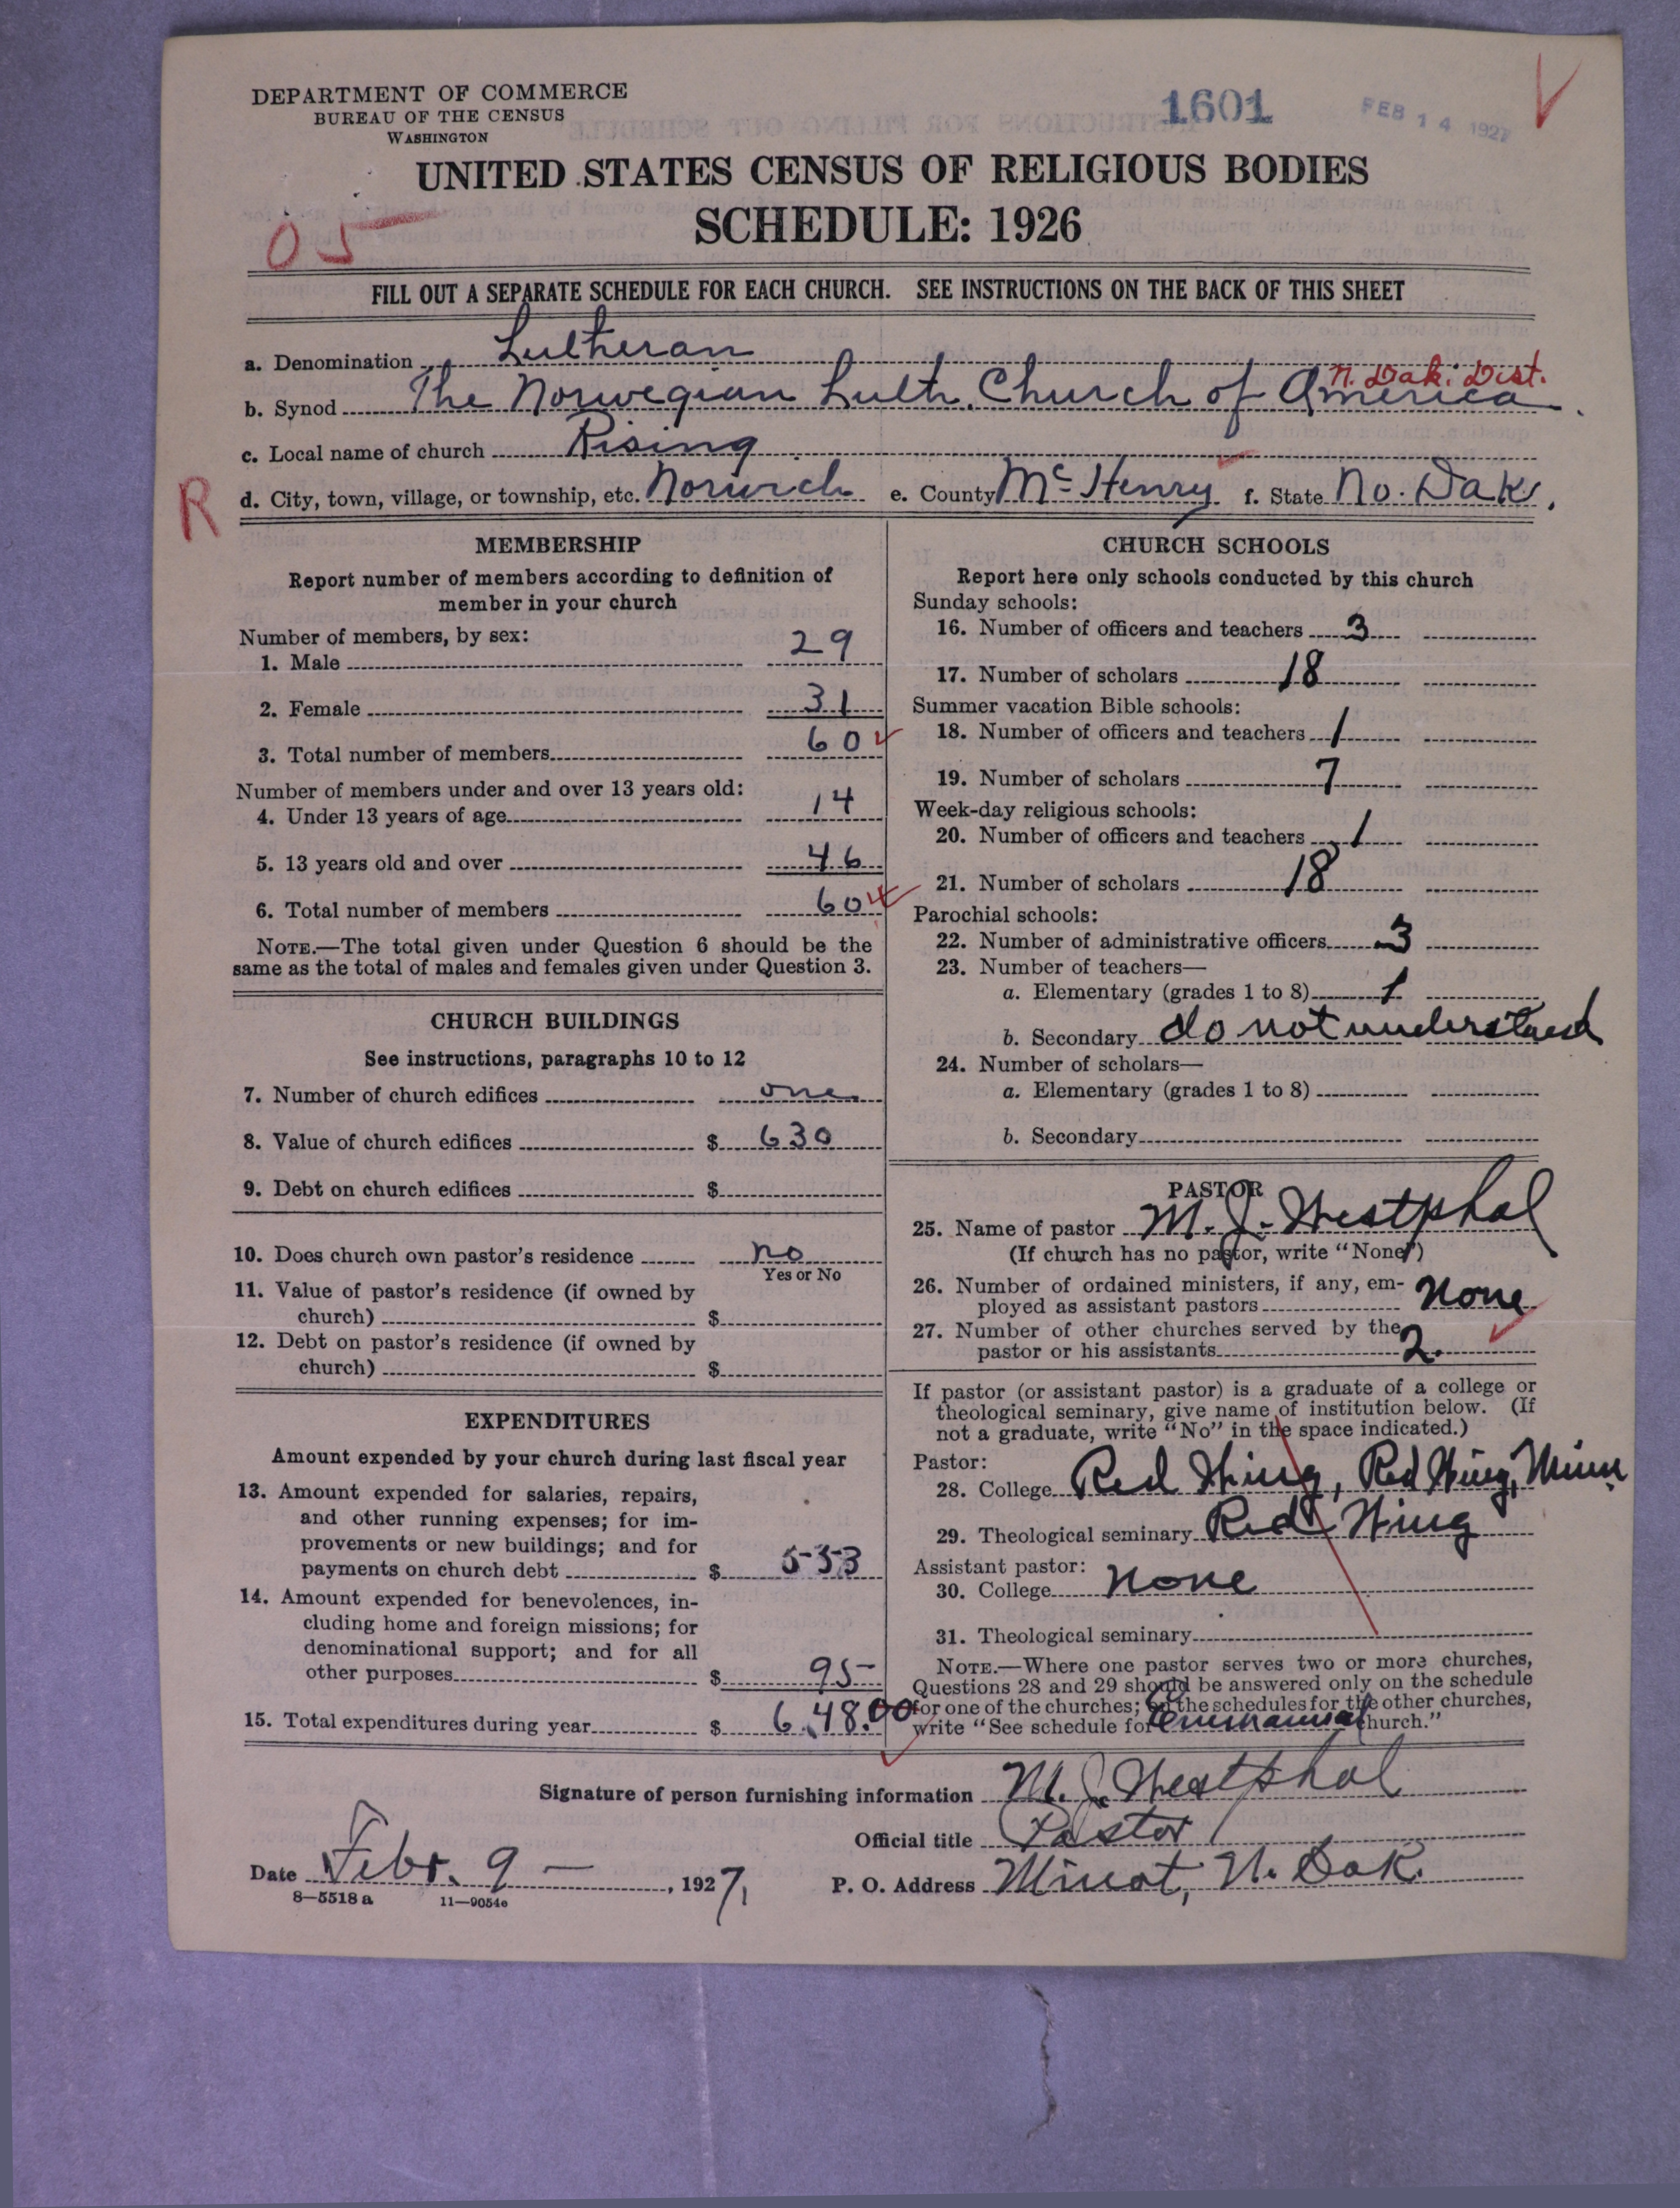 DEPARTMENT OF COMMERCE
BUREAU OF THE CENSUS
WASHINGTON
1601
FEB 14 1927
UNITED STATES CENSUS OF RELIGIOUS BODIES
SCHEDULE: 1926
05
FILL OUT A SEPARATE SCHEDULE FOR EACH CHURCH. SEE INSTRUCTIONS ON THE BACK OF THIS SHEET
a. Denomination Lutheran
N. Dak. Dist.
b. Synod The Norwegian Luth. Church of America.
c. Local name of church Rising
R
d. City, town, village, or township, etc. Norwich e. County McHenry f. State No. Dak.
MEMBERSHIP
Report number of members according to definition of
member in your church
Number of members, by sex:
1. Male 29
2. Female 31
3. Total number of members 60
Number of members under and over 13 years old:
4. Under 13 years of age 14
5. 13 years old and over 46
6. Total number of members 60
NOTE.—The total given under Question 6 should be the
same as the total of males and females given under Question 3.
CHURCH BUILDINGS
See instructions, paragraphs 10 to 12
7. Number of church edifices one
8. Value of church edifices $ 630
9. Debt on church edifices $
10. Does church own pastor's residence no
Yes or No
11. Value of pastor's residence (if owned by
church) $
12. Debt on pastor's residence (if owned by
church) $
EXPENDITURES
Amount expended by your church during last fiscal year
13. Amount expended for salaries, repairs,
and other running expenses; for im-
provements or new buildings; and for
payments on church debt $ 553
14. Amount expended for benevolences, in-
cluding home and foreign missions; for
denominational support; and for all
other purposes $ 95
15. Total expenditures during year $ 648.00
CHURCH SCHOOLS
Report here only schools conducted by this church
Sunday schools:
16. Number of officers and teachers 3
17. Number of scholars 18
Summer vacation Bible schools:
18. Number of officers and teachers 1
19. Number of scholars 7
Week-day religious schools:
20. Number of officers and teachers 1
21. Number of scholars 18
Parochial schools:
22. Number of administrative officers 3
23. Number of teachers—
a. Elementary (grades 1 to 8) 1
b. Secondary do not understand
24. Number of scholars—
a. Elementary (grades 1 to 8)
b. Secondary
PASTOR
25. Name of pastor M. J. Westphal
(If church has no pastor, write "None")
26. Number of ordained ministers, if any, em-
ployed as assistant pastors None
27. Number of other churches served by the
pastor or his assistants 2.
If pastor (or assistant pastor) is a graduate of a college or
theological seminary, give name of institution below. (If
not a graduate, write "No" in the space indicated.)
Pastor:
28. College Red Wing, Red Wing, Minn
29. Theological seminary Red Wing
Assistant pastor:
30. College None
31. Theological seminary
NOTE.—Where one pastor serves two or more churches,
Questions 28 and 29 should be answered only on the schedule
for one of the churches; on the schedules for the other churches,
write "See schedule for Emmanuel church."
Signature of person furnishing information M. J. Westphal
Official title Pastor
Date Febr. 9 – , 1927, P. O. Address Minot, N. Dak.
8—5518 a 11—9054c